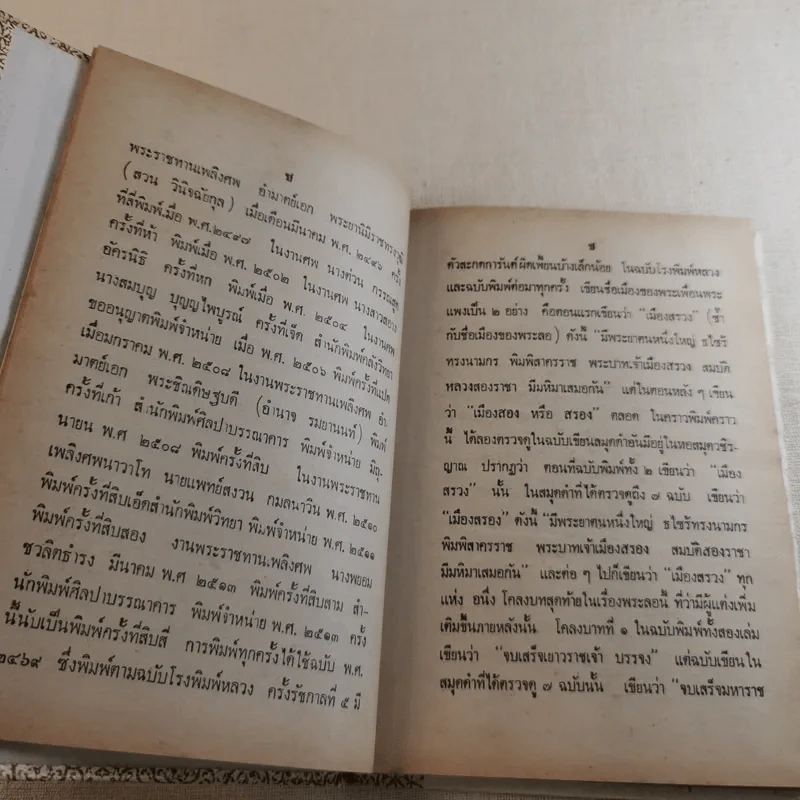 ช
พระราชทานเพลิงศพ อำมาตย์เอก พระยานิมิราชทรงวุฒิ
(สวน วินิจฉัยกุล) เมื่อเดือนมีนาคม พ.ศ. ๒๔๙๖ ครั้ง
ที่สี่พิมพ์เมื่อ พ.ศ.๒๔๙๗ ในงานศพ นางด่วน กรรณสูต
ครั้งที่ห้า พิมพ์เมื่อ พ.ศ. ๒๕๐๒ ในงานศพ นางสาวสอาง
อัครนิธิ ครั้งที่หก พิมพ์เมื่อ พ.ศ. ๒๕๐๔ ในงานศพ
นางสมบุญ บุญญไพบูรณ์ ครั้งที่เจ็ด สำนักพิมพ์คลังวิทยา
ขออนุญาตพิมพ์จำหน่าย เมื่อ พ.ศ. ๒๕๐๖ พิมพ์ครั้งที่แปด
เมื่อมกราคม พ.ศ. ๒๕๐๘ ในงานพระราชทานเพลิงศพ อำ-
มาตย์เอก พระชิณดิษฐบดี (อำนาจ รมยานนท์) พิมพ์
ครั้งที่เก้า สำนักพิมพ์ศิลปาบรรณาคาร พิมพ์จำหน่าย มิถุ-
นายน พ.ศ ๒๕๐๘ พิมพ์ครั้งที่สิบ ในงานพระราชทาน
เพลิงศพนาวาโท นายแพทย์สงวน กมลนาวิน พ.ศ. ๒๕๑๐
พิมพ์ครั้งที่สิบเอ็ดสำนักพิมพ์วิทยา พิมพ์จำหน่าย พ.ศ. ๒๕๑๑
พิมพ์ครั้งที่สิบสอง งานพระราชทานเพลิงศพ นางพยอม
ชวลิตธำรง มีนาคม พ.ศ ๒๕๑๓ พิมพ์ครั้งที่สิบสาม สำ-
นักพิมพ์ศิลปาบรรณาคาร พิมพ์จำหน่าย พ.ศ. ๒๕๑๓ ครั้ง
นี้นับเป็นพิมพ์ครั้งที่สิบสี่ การพิมพ์ทุกครั้งได้ใช้ฉบับ พ.ศ.
๒๔๖๙ ซึ่งพิมพ์ตามฉบับโรงพิมพ์หลวง ครั้งรัชกาลที่ ๕ มี
ซ
ตัวสะกดการันต์ผิดเพี้ยนบ้างเล็กน้อย ในฉบับโรงพิมพ์หลวง
และฉบับพิมพ์ต่อมาทุกครั้ง เขียนชื่อเมืองของพระเพื่อนพระ
แพงเป็น ๒ อย่าง คือตอนแรกเขียนว่า "เมืองสรวง" (ซ้ำ
กับชื่อเมืองของพระลอ) ดังนี้ "มีพระยาคนหนึ่งใหญ่ ธไซร้
ทรงนามกร พิมพิสาครราช พระบาทเจ้าเมืองสรวง สมบัติ
หลวงสองราชา มีมหิมาเสมอกัน" แต่ในตอนหลัง ๆ เขียน
ว่า "เมืองสอง หรือ สรอง" ตลอด ในคราวพิมพ์คราว
นี้ ได้ลองตรวจดูในฉบับเขียนสมุดดำอันมีอยู่ในหอสมุดวชิร-
ญาณ ปรากฏว่า ตอนที่ฉบับพิมพ์ทั้ง ๒ เขียนว่า "เมือง
สรวง" นั้น ในสมุดดำที่ได้ตรวจดูถึง ๗ ฉบับ เขียนว่า
"เมืองสรอง" ดังนี้ "มีพระยาคนหนึ่งใหญ่ ธไซร้ทรงนามกร
พิมพิสาครราช พระบาทเจ้าเมืองสรอง สมบัติสองราชา
มีมหิมาเสมอกัน" และต่อ ๆ ไปก็เขียนว่า "เมืองสรวง" ทุก
แห่ง อนึ่ง โคลงบทสุดท้ายในเรื่องพระลอนี้ ที่ว่ามีผู้แต่งเพิ่ม
เติมขึ้นภายหลังนั้น โคลงบาทที่ ๑ ในฉบับพิมพ์ทั้งสองเล่ม
เขียนว่า "จบเสร็จเยาวราชเจ้า บรรจง" แต่ฉบับเขียนใน
สมุดดำที่ได้ตรวจดู ๗ ฉบับนั้น เขียนว่า "จบเสร็จมหาราช